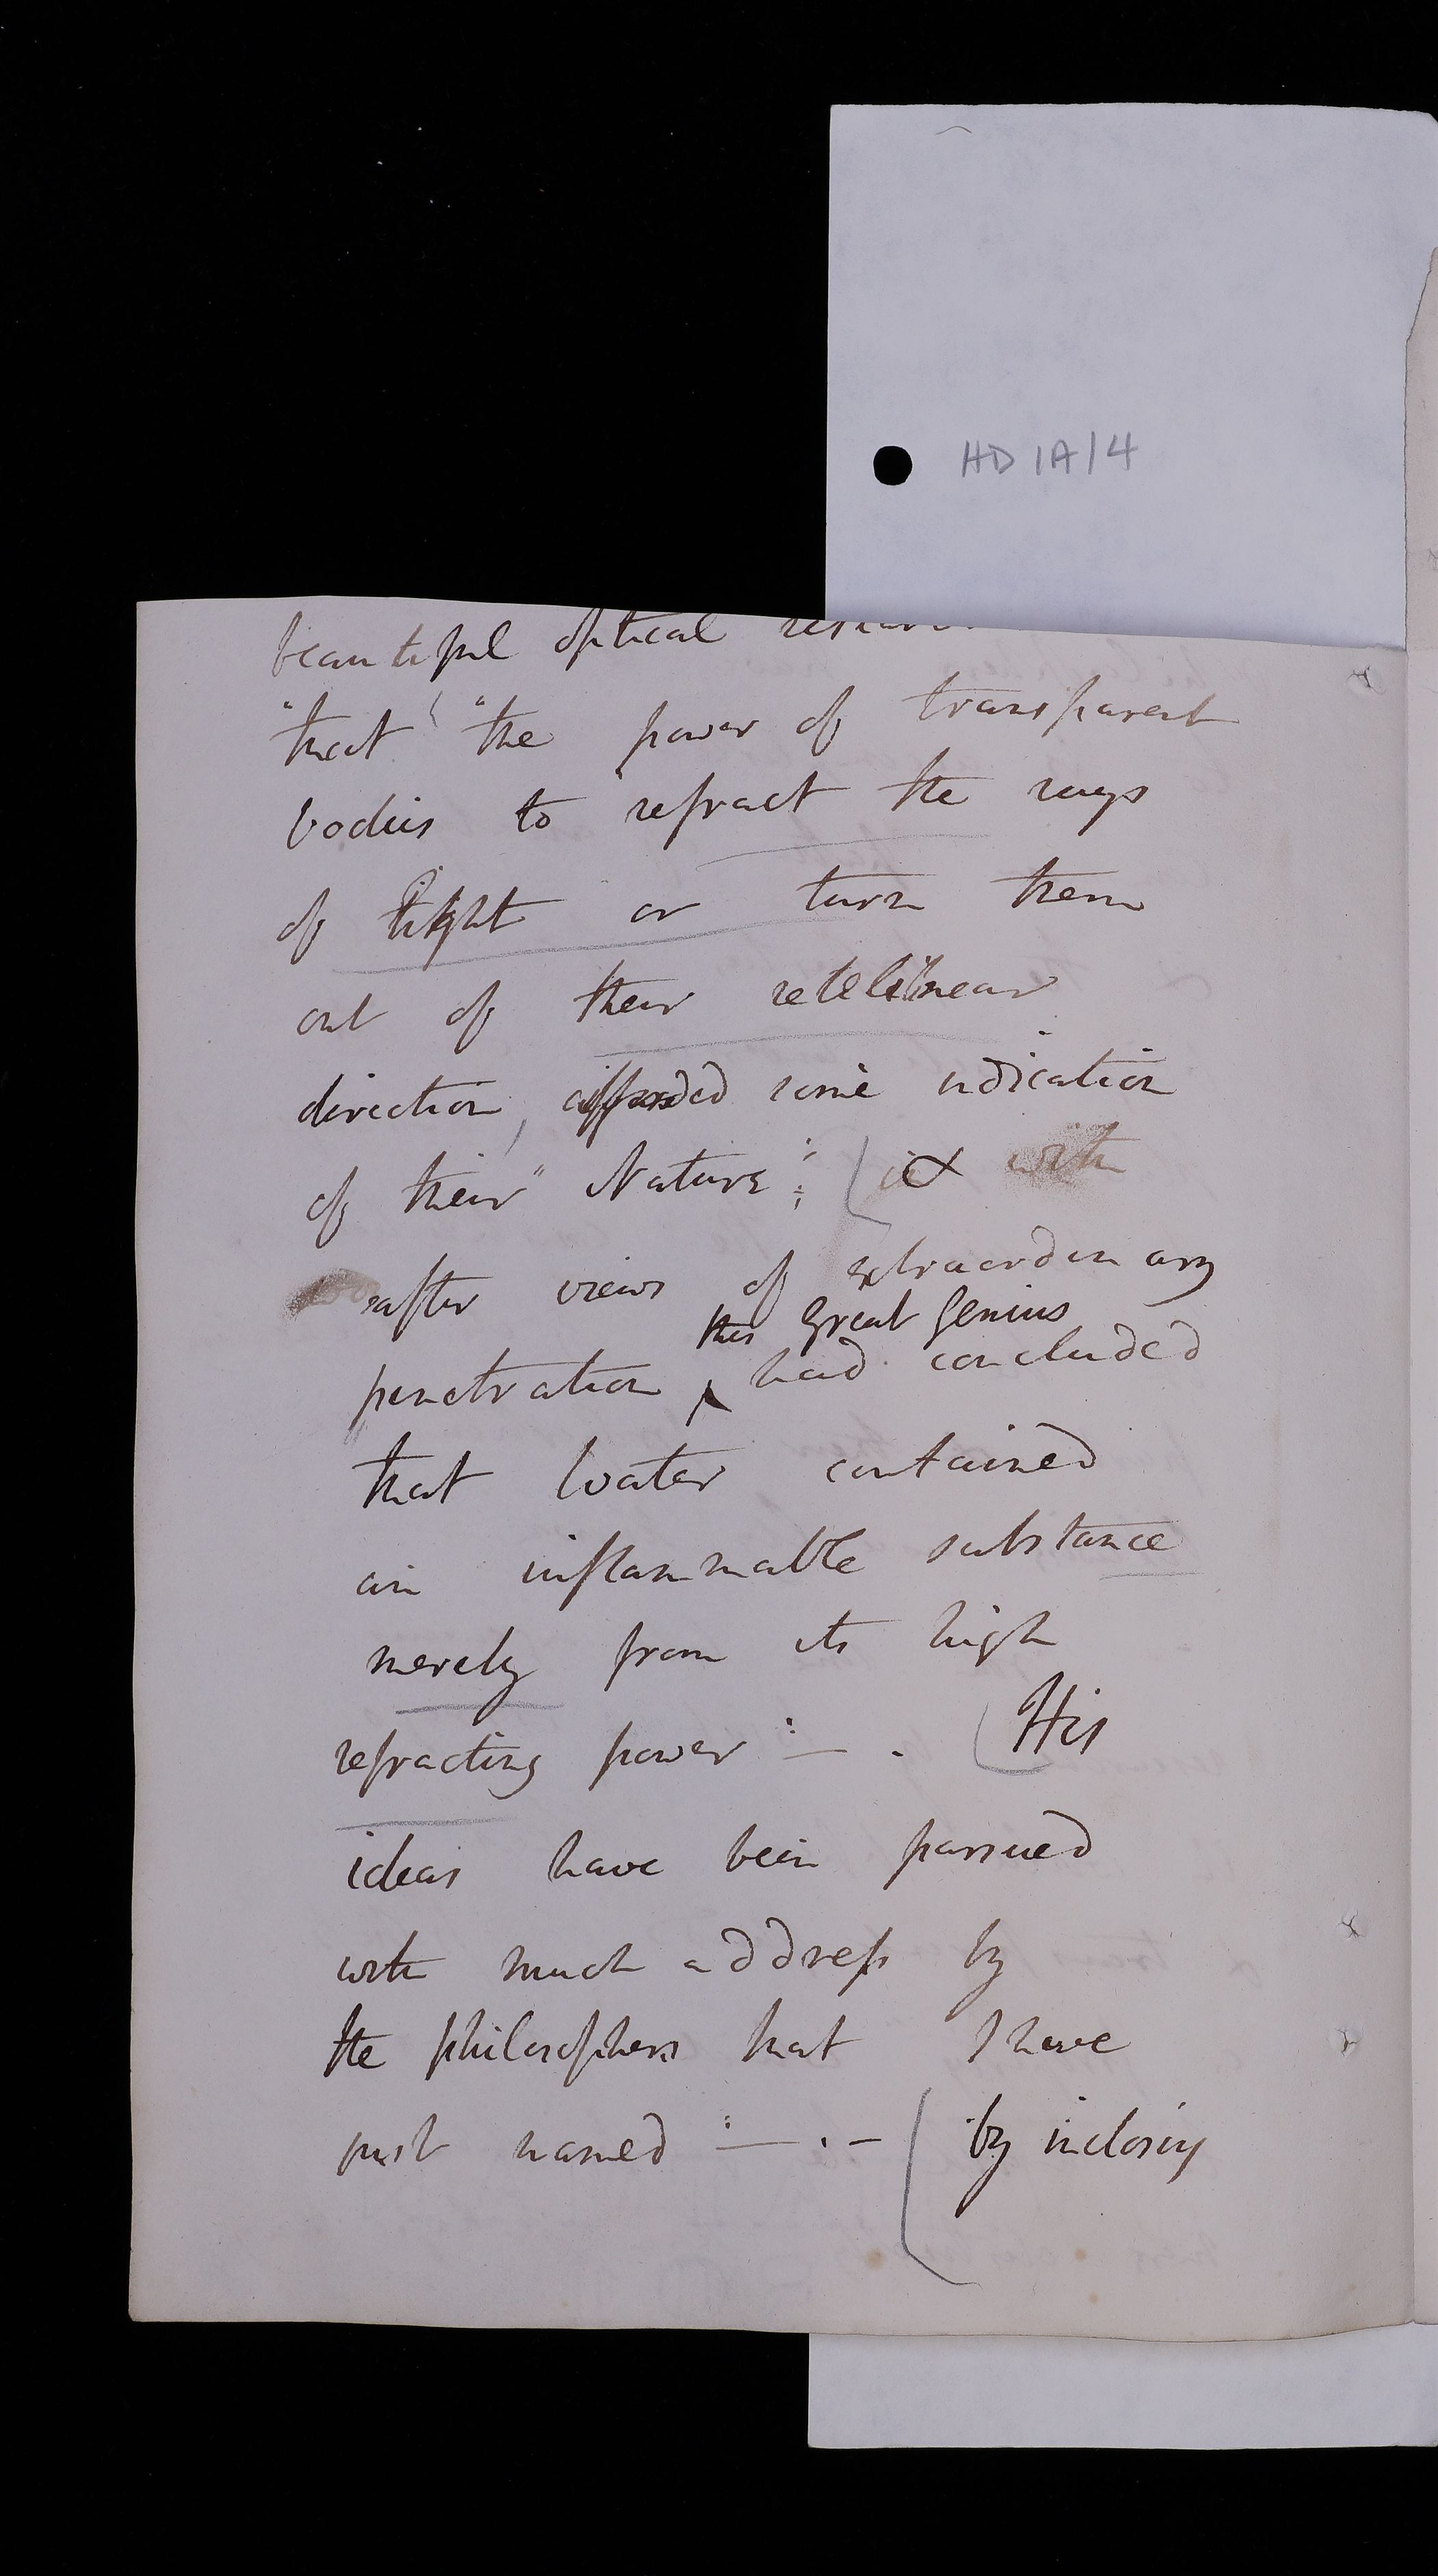 HD 1A/4
beautiful optical
"that "the power of transparent
bodies to refract the rays
of light or turn them
out of their retelilinear
direction, afforded some indication
of their" Nature: & with
after views of extraordinary
this great Genius
penetration had concluded
that water contained
an inflammable substance
merely from its high
refracting power :— . (His
ideas have been pursued
with much address by
the philosophers that I have
just named :— . — (by inclosing